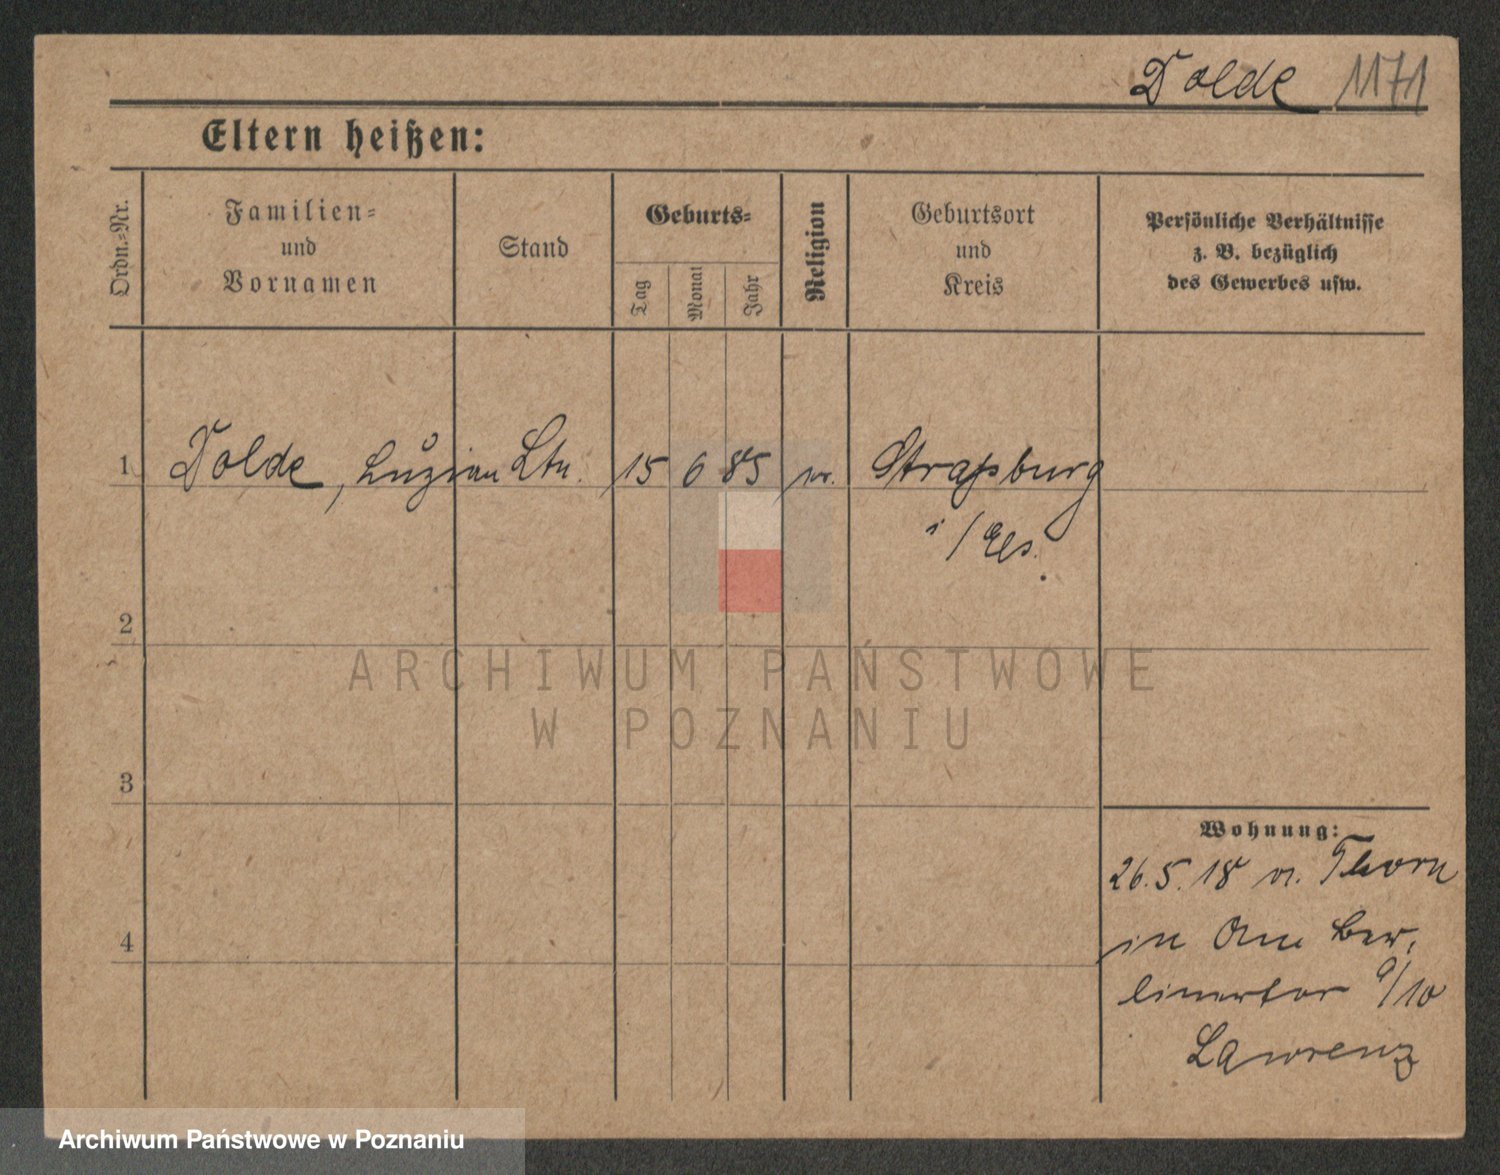 Dolde 1171
Eltern heißen:
Ordn.-Nr.
Familien-
und
Vornamen
Stand
Geburts-
Tag
Monat
Jahr
Religion
Geburtsort
und
Kreis
Persönliche Verhältnisse
z. B. bezüglich
des Gewerbes usw.
1 Dolde, Luzian Ltn. 15 6 85 Straßburg
i/Els.
2
3
4
Wohnung:
26.5.18 v. Thorn
in Am Ber-
linertor 9/10
Lawrenz
ARCHIWUM PAŃSTWOWE
W POZNANIU
Archiwum Państwowe w Poznaniu